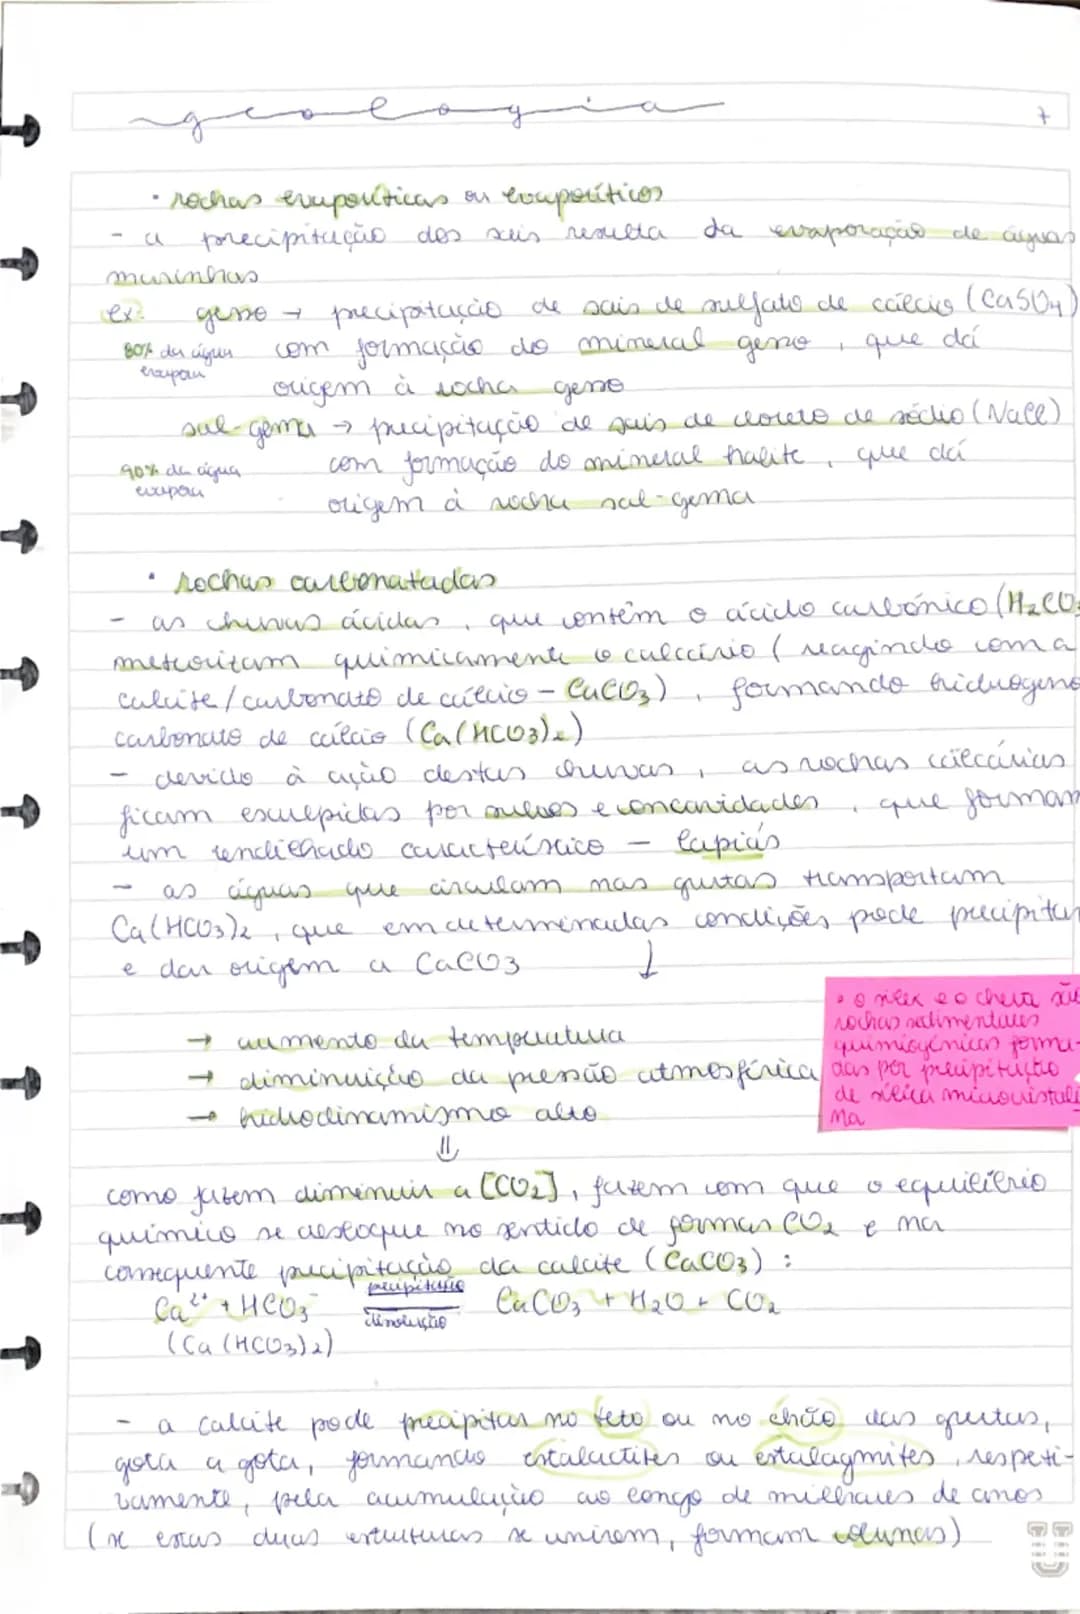 geologia 7
· rochas evaporíticas ou evaporíticos
- a precipitação dos sais resulta da evaporação de águas
marinhas
ex: gesso → precipitação de sais de sulfato de cálcio (CaSO4)
80% da água com formação do mineral gesso, que dá
evapora origem à rocha gesso
sal-gema → precipitação de sais de cloreto de sódio (NaCl)
90% da água com formação do mineral halite, que dá
evapora origem à rocha sal-gema
· rochas carbonatadas
- as chuvas ácidas, que contêm o ácido carbónico (H2CO3
meteorizam quimicamente o calcário (reagindo com a
calcite/carbonato de cálcio - CaCO3), formando hidrogeno
carbonato de cálcio (Ca(HCO3)2)
- devido à ação destas chuvas, as rochas calcárias
ficam esculpidas por sulcos e concavidades, que formam
um rendilhado característico - lapiás
- as águas que circulam nas grutas transportam
Ca(HCO3)2, que em determinadas condições pode precipitar
e dar origem a CaCO3 ↓
→ aumento da temperatura
→ diminuição da pressão atmosférica
→ hidrodinamismo alto
⇓
• o sílex e o cherte são
rochas sedimentares
quimiogénicas forma-
das por precipitação
de sílica microcristali
na
como fazem diminuir a [CO2], fazem com que o equilíbrio
químico se desloque no sentido de formar CO2 e na
consequente precipitação da calcite (CaCO3):
precipitação
Ca2+ + HCO3- CaCO3 + H2O + CO2
dissolução
(Ca(HCO3)2)
- a calcite pode precipitar no teto ou no chão das grutas,
gota a gota, formando estalactites ou estalagmites, respeti-
vamente, pela acumulação ao longo de milhares de anos
(se estas duas estruturas se unirem, formam colunas)